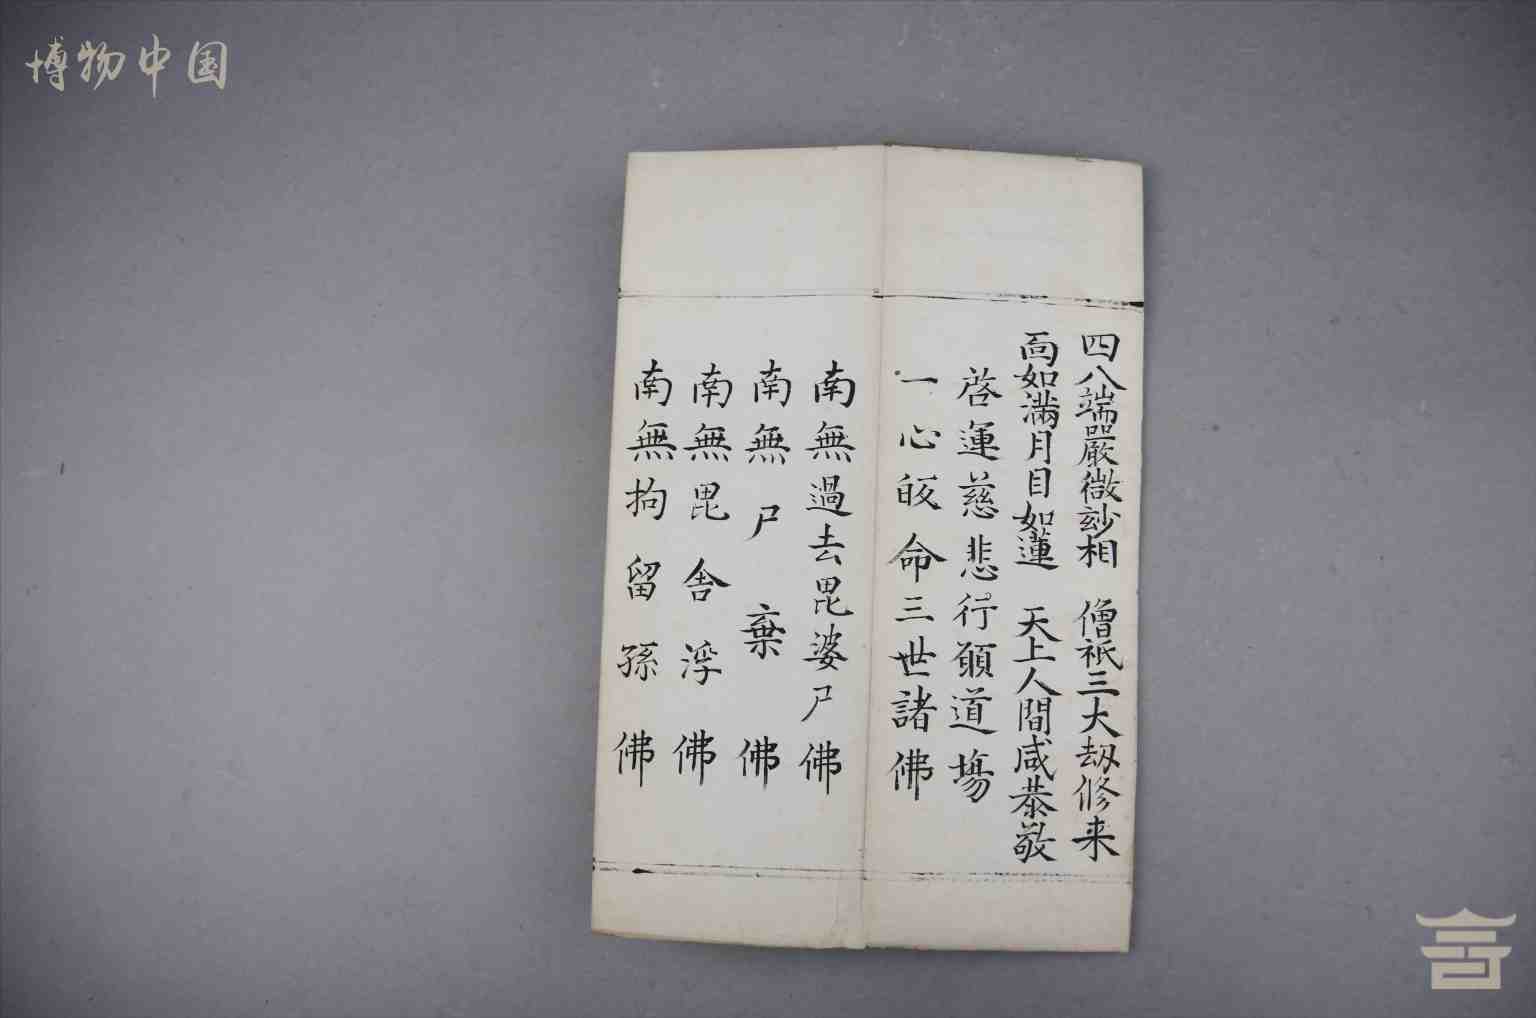 博物中国
四八端嚴微玅相 僧祇三大劫修来
面如滿月目如蓮 天上人間咸恭敬
啓運慈悲行願道場
一心皈命三世諸佛
南無過去毘婆尸佛
南無尸棄佛
南無毘舍浮佛
南無拘留孫佛